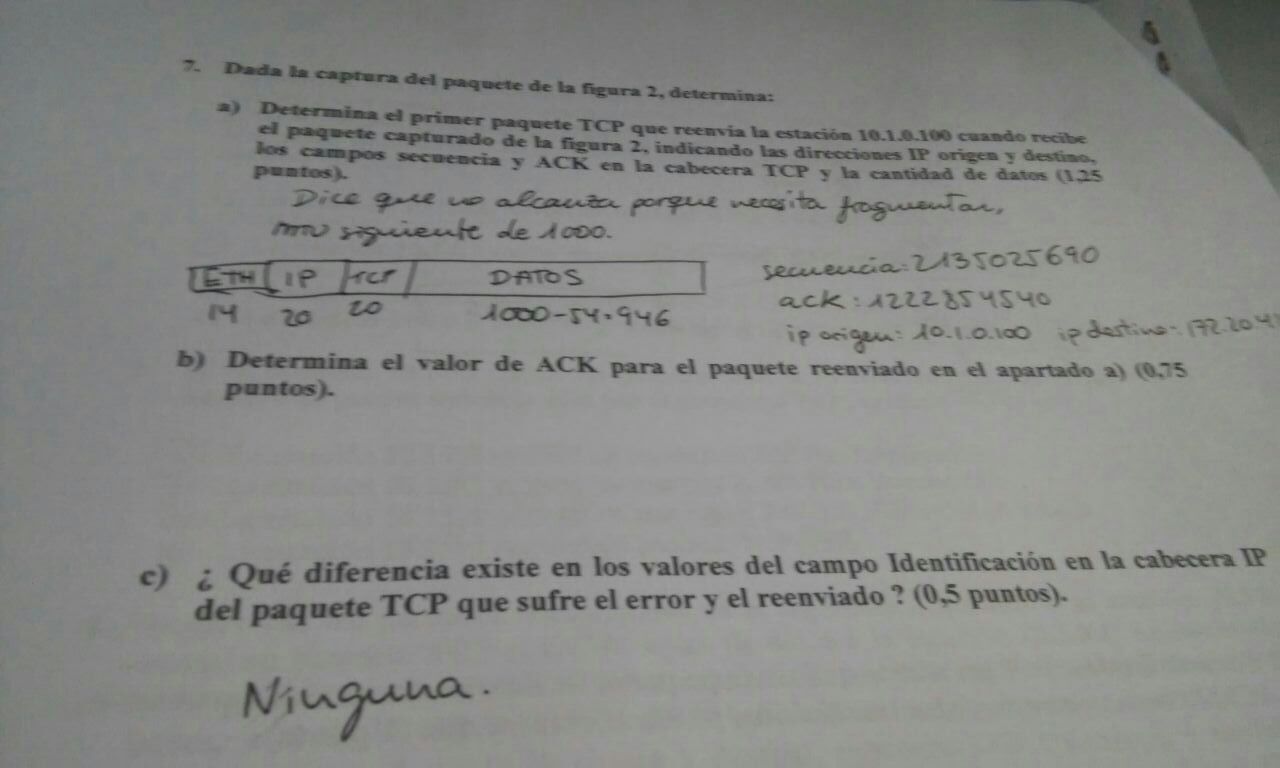 7. Dada la captura del paquete de la figura 2, determina:
a) Determina el primer paquete TCP que reenvia la estación 10.1.0.100 cuando recibe
el paquete capturado de la figura 2, indicando las direcciones IP origen y destino,
los campos secuencia y ACK en la cabecera TCP y la cantidad de datos (1,25
puntos).
Dice que no alcanza porque necesita fragmentar,
siguiente de 1000.
ETH IP TCP DATOS
14 20 20 1000-54=946
secuencia: 2135025690
ack: 1222854540
ip origen: 10.1.0.100 ip destino: 172.20.4
b) Determina el valor de ACK para el paquete reenviado en el apartado a) (0,75
puntos).
c) ¿ Qué diferencia existe en los valores del campo Identificación en la cabecera IP
del paquete TCP que sufre el error y el reenviado ? (0,5 puntos).
Ninguna.